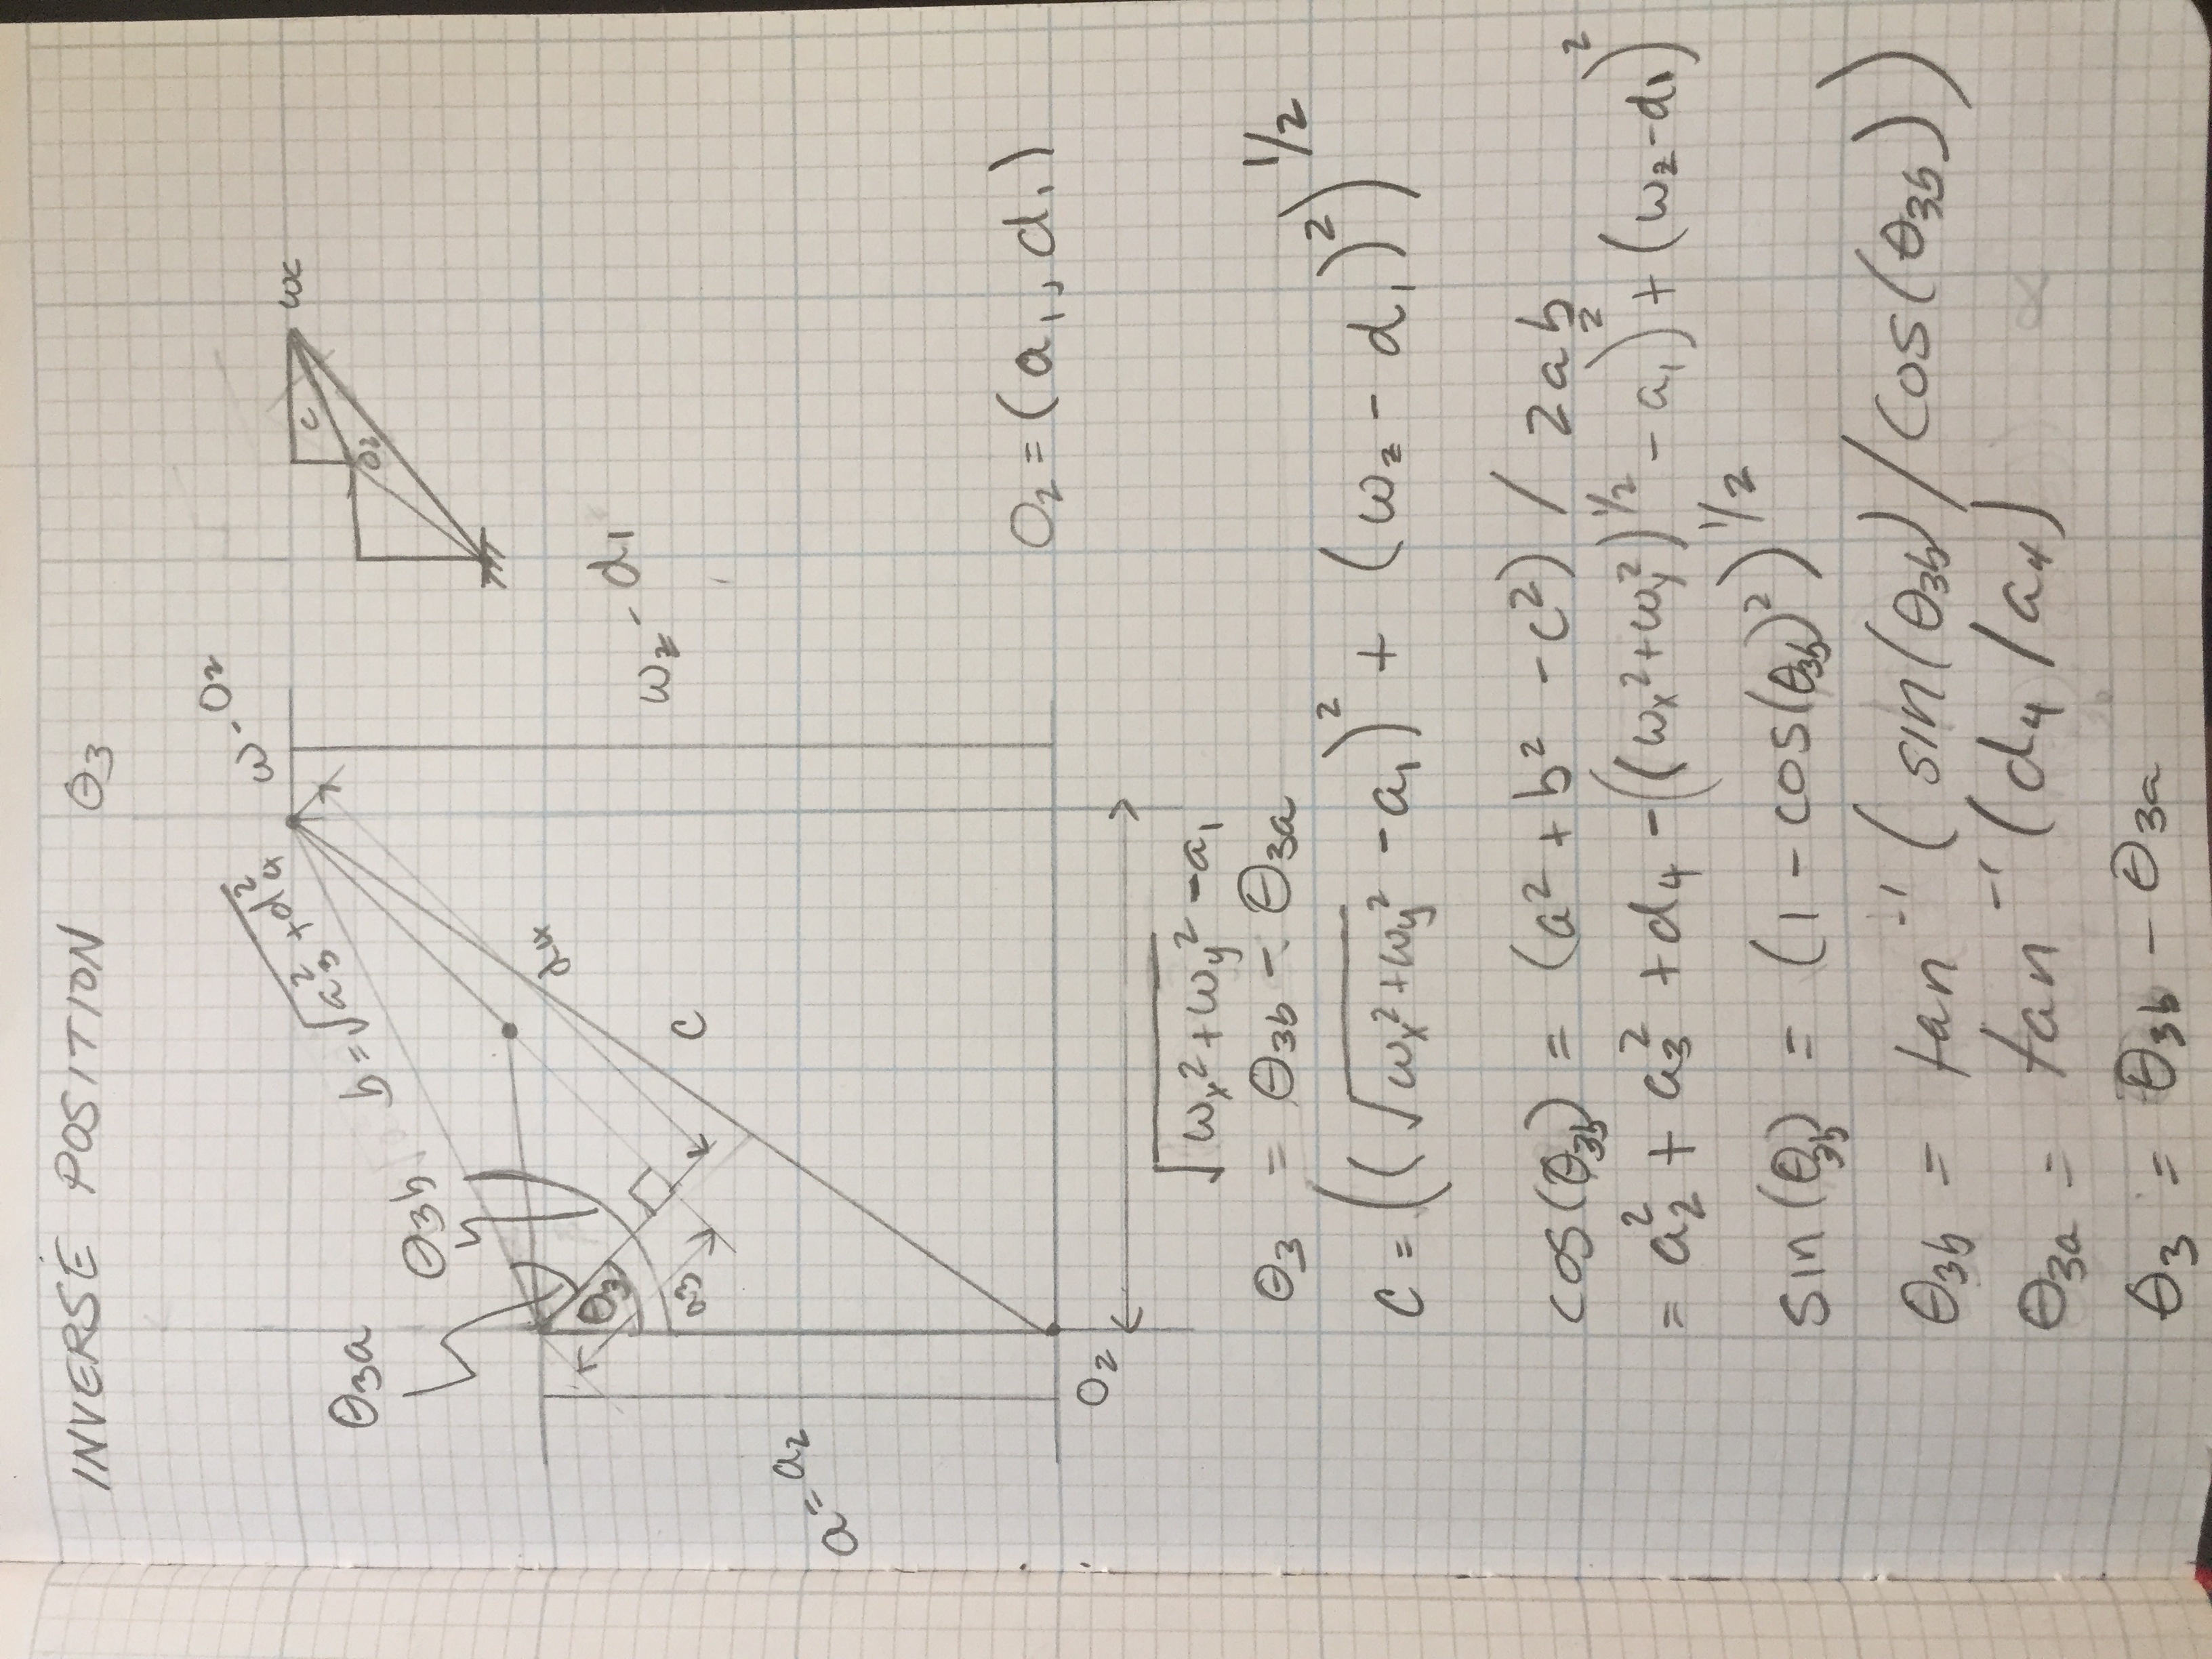 INVERSE POSITION θ3
ω - O2
b = √(a3² + d4²)
ωc
c
O2
θ3a
θ3b
θ3
d4
a3
c
ωz - d1
a = a2
O2 = (a1, d1)
O2
√(ωx² + ωy²) - a1
θ3 = θ3b - θ3a
c = ((√(ωx² + ωy²) - a1)² + (ωz - d1)²)^1/2
cos(θ3b) = (a² + b² - c²) / 2ab
= a2² + a3² + d4 - ((ωx² + ωy²)^1/2 - a1)² + (ωz - d1)²
sin(θ3b) = (1 - cos(θ3b)²)^1/2
θ3b = tan⁻¹(sin(θ3b) / cos(θ3b))
θ3a = tan⁻¹(d4 / a4)
θ3 = θ3b - θ3a